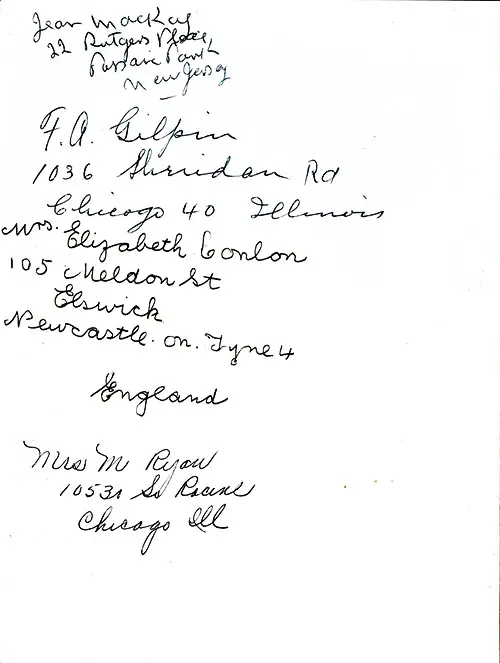 Jean MacKay
22 Rutgers Place
Passaic Park
New Jersey
F.A. Gilpin
1036 Sheridan Rd
Chicago 40 Illinois
Mrs. Elizabeth Conlon
105 Meldon St
Elswick
Newcastle. on. Tyne 4
England
Mrs M Ryan
So Racine
Chicago Ill